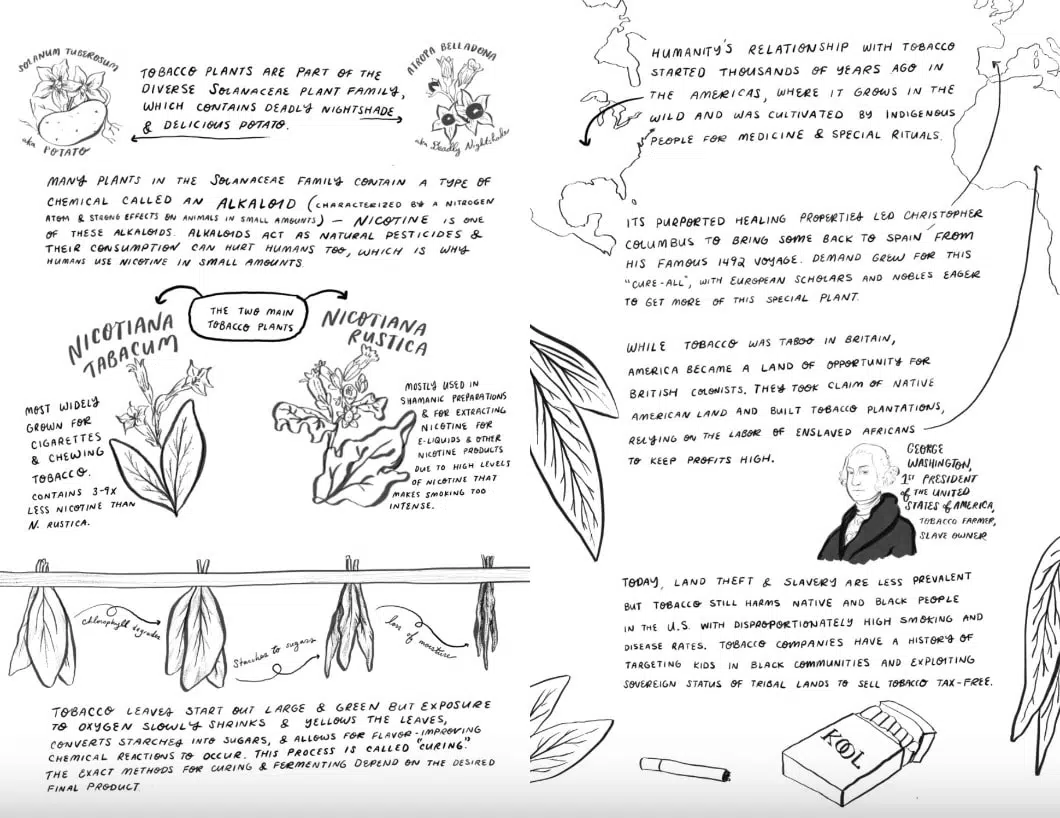 SOLANUM TUBEROSUM
aka POTATO
TOBACCO PLANTS ARE PART OF THE
DIVERSE SOLANACEAE PLANT FAMILY,
WHICH CONTAINS DEADLY NIGHTSHADE
& DELICIOUS POTATO.
ATROPA BELLADONA
aka Deadly Nightshade
MANY PLANTS IN THE SOLANACEAE FAMILY CONTAIN A TYPE OF
CHEMICAL CALLED AN ALKALOID (CHARACTERIZED BY A NITROGEN
ATOM & STRONG EFFECTS ON ANIMALS IN SMALL AMOUNTS) — NICOTINE IS ONE
OF THESE ALKALOIDS. ALKALOIDS ACT AS NATURAL PESTICIDES &
THEIR CONSUMPTION CAN HURT HUMANS TOO, WHICH IS WHY
HUMANS USE NICOTINE IN SMALL AMOUNTS.
THE TWO MAIN
TOBACCO PLANTS
NICOTIANA
TABACUM
MOST WIDELY
GROWN FOR
CIGARETTES
& CHEWING
TOBACCO.
CONTAINS 3-9X
LESS NICOTINE THAN
N. RUSTICA.
NICOTIANA
RUSTICA
MOSTLY USED IN
SHAMANIC PREPARATIONS
& FOR EXTRACTING
NICOTINE FOR
E-LIQUIDS & OTHER
NICOTINE PRODUCTS
DUE TO HIGH LEVELS
OF NICOTINE THAT
MAKES SMOKING TOO
INTENSE.
chlorophyll degrades
Starches to sugars
loss of moisture
TOBACCO LEAVES START OUT LARGE & GREEN BUT EXPOSURE
TO OXYGEN SLOWLY SHRINKS & YELLOWS THE LEAVES,
CONVERTS STARCHES INTO SUGARS, & ALLOWS FOR FLAVOR-IMPROVING
CHEMICAL REACTIONS TO OCCUR. THIS PROCESS IS CALLED "CURING."
THE EXACT METHODS FOR CURING & FERMENTING DEPEND ON THE DESIRED
FINAL PRODUCT.
HUMANITY'S RELATIONSHIP WITH TOBACCO
STARTED THOUSANDS OF YEARS AGO IN
THE AMERICAS, WHERE IT GROWS IN THE
WILD AND WAS CULTIVATED BY INDIGENOUS
PEOPLE FOR MEDICINE & SPECIAL RITUALS.
ITS PURPORTED HEALING PROPERTIES LED CHRISTOPHER
COLUMBUS TO BRING SOME BACK TO SPAIN FROM
HIS FAMOUS 1492 VOYAGE. DEMAND GREW FOR THIS
"CURE-ALL", WITH EUROPEAN SCHOLARS AND NOBLES EAGER
TO GET MORE OF THIS SPECIAL PLANT.
WHILE TOBACCO WAS TABOO IN BRITAIN,
AMERICA BECAME A LAND OF OPPORTUNITY FOR
BRITISH COLONISTS. THEY TOOK CLAIM OF NATIVE
AMERICAN LAND AND BUILT TOBACCO PLANTATIONS,
RELYING ON THE LABOR OF ENSLAVED AFRICANS
TO KEEP PROFITS HIGH.
GEORGE
WASHINGTON,
1ST PRESIDENT
of THE UNITED
STATES of AMERICA,
TOBACCO FARMER,
SLAVE OWNER
TODAY, LAND THEFT & SLAVERY ARE LESS PREVALENT
BUT TOBACCO STILL HARMS NATIVE AND BLACK PEOPLE
IN THE U.S. WITH DISPROPORTIONATELY HIGH SMOKING AND
DISEASE RATES. TOBACCO COMPANIES HAVE A HISTORY OF
TARGETING KIDS IN BLACK COMMUNITIES AND EXPLOITING
SOVEREIGN STATUS OF TRIBAL LANDS TO SELL TOBACCO TAX-FREE.
KOOL